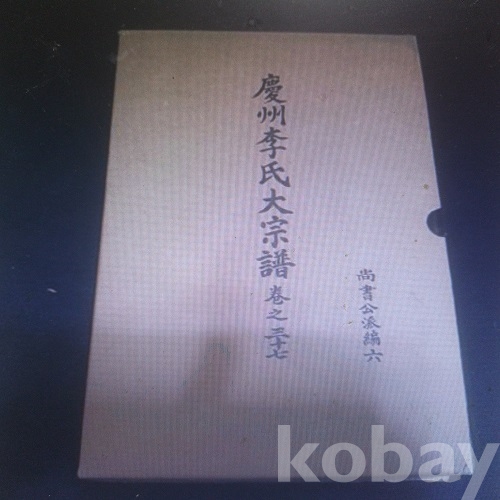 慶州李氏大宗譜 卷之三十七
尚書公派編六
kobay